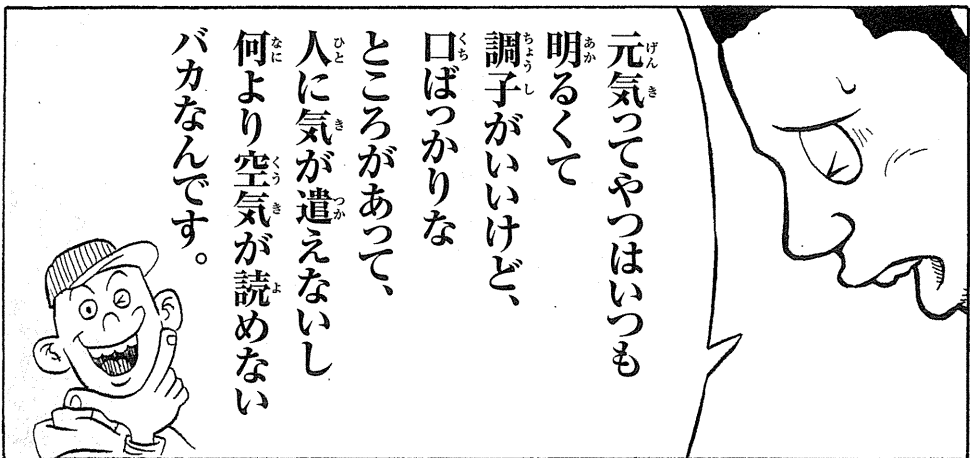 元気ってやつはいつも
明るくて
調子がいいけど、
口ばっかりな
ところがあって、
人に気が遣えないし
何より空気が読めない
バカなんです。